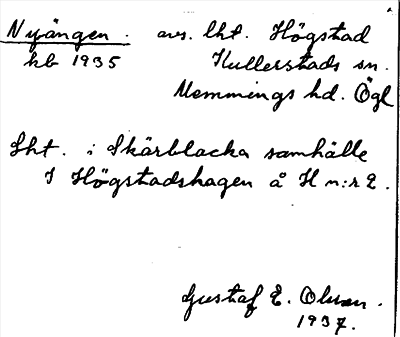 Nyängen. avs. lht. Högstad
kb 1935 Kullerstads sn.
Memmings hd. Ögl
Lht. i Skärblacka samhälle
I Högstadshagen å H n:r 2.
Gustaf E. Olsson.
1937.